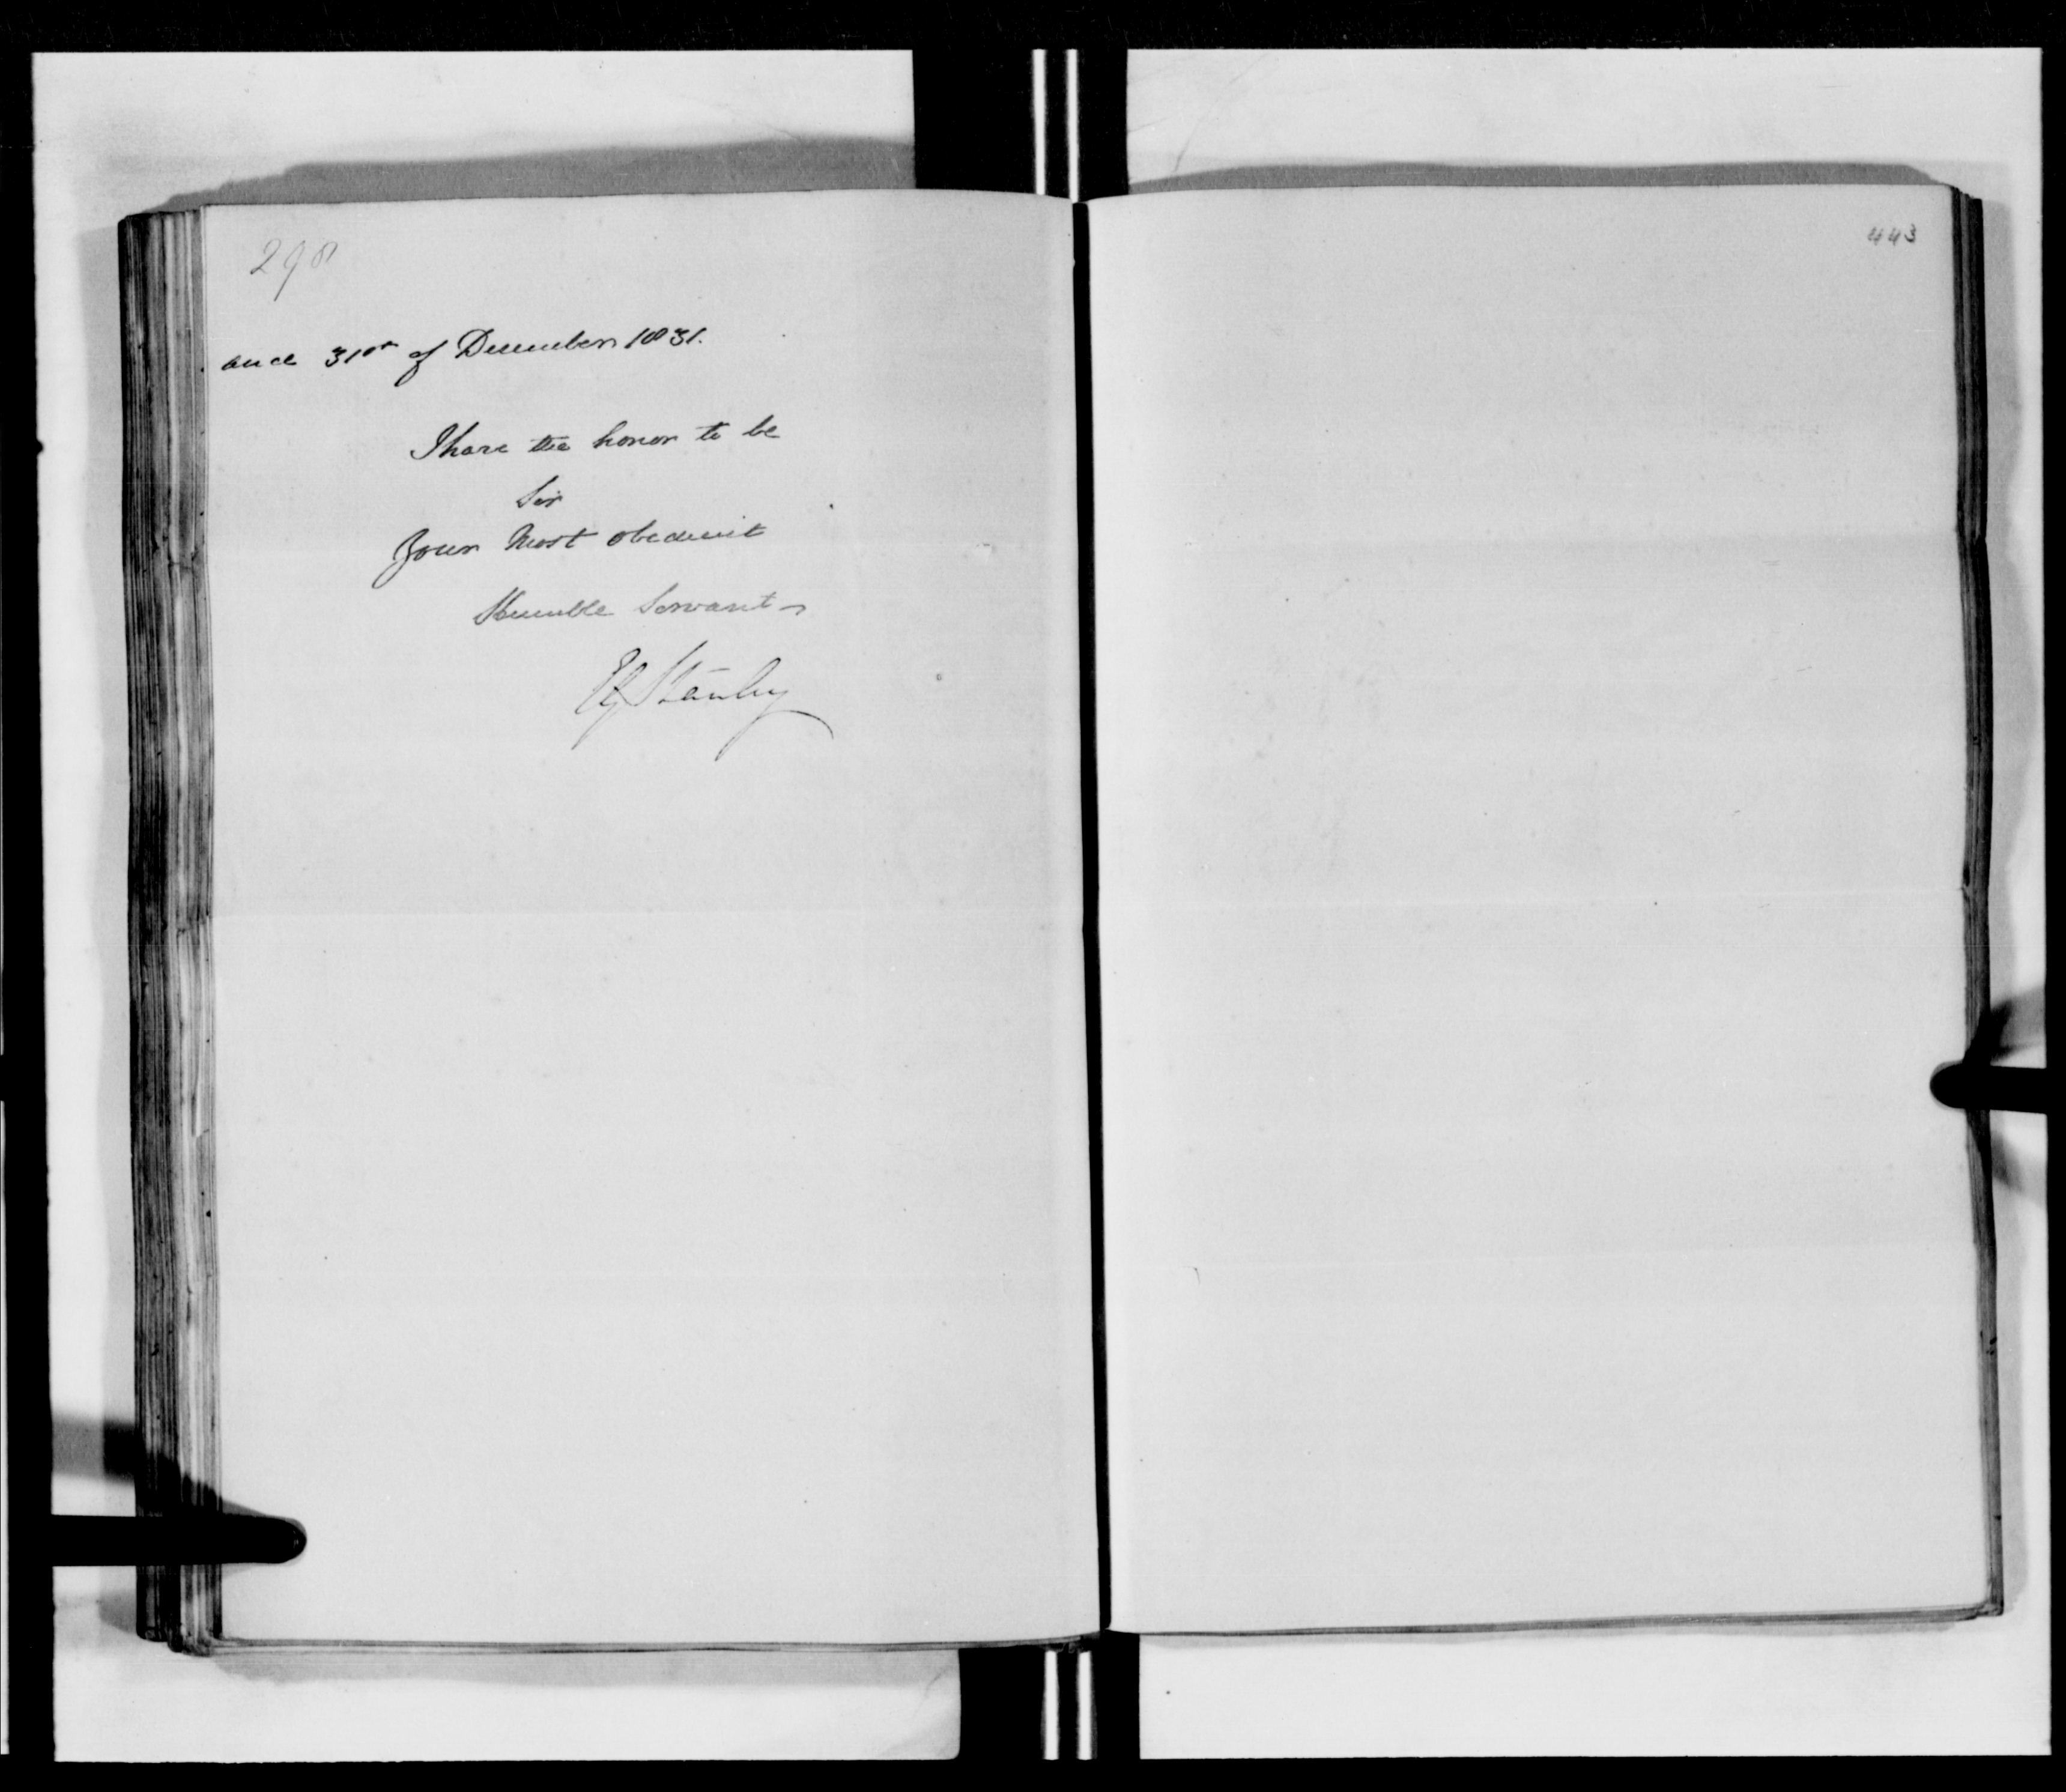 298
and 31st of December 1831.
I have the honor to be
Sir
Your Most obedient
Humble Servant
EG Stanley
443